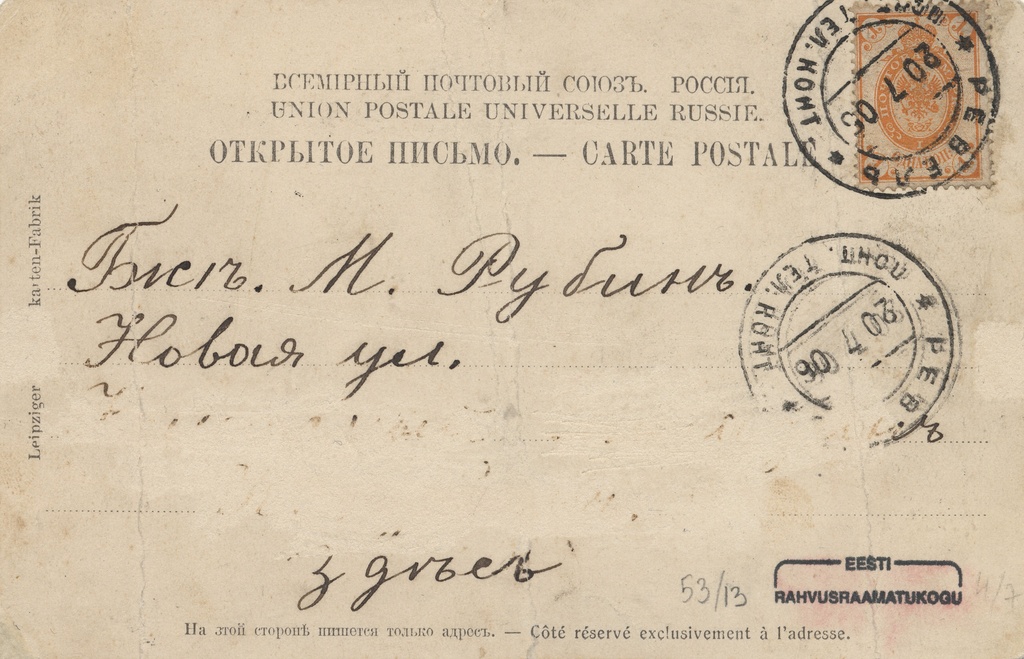 ВСЕМІРНЫЙ ПОЧТОВЫЙ СОЮЗЪ. РОССІЯ.
UNION POSTALE UNIVERSELLE RUSSIE.
ОТКРЫТОЕ ПИСЬМО. — CARTE POSTALE
РЕВЕЛЬ
ПОЧТ. ТЕЛ. КОНТ.
20 7 06
М. Рубинъ.
Новая ул.
ПОЧТ. ТЕЛ. КОНТ.
РЕВ
20 7 06
здѣсь
53/13
EESTI
RAHVUSRAAMATUKOGU
4/7
На этой сторонѣ пишется только адресъ. — Côté réservé exclusivement à l'adresse.
Leipziger kartenFabrik